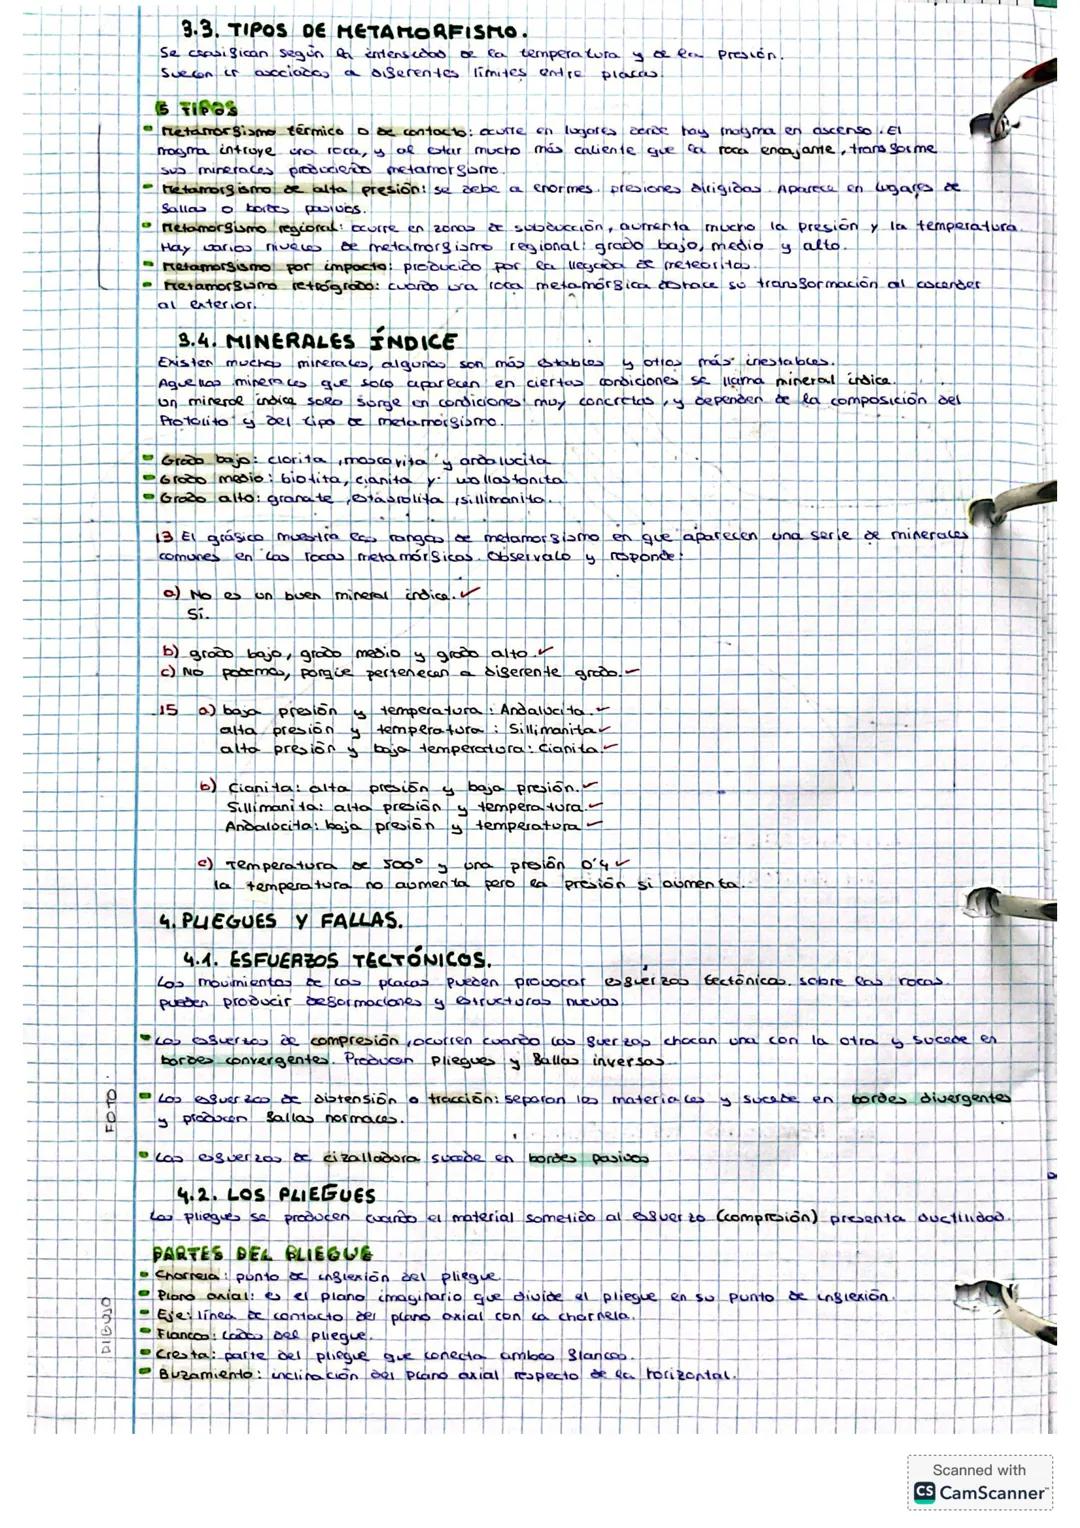 3.3. TIPOS DE METAMORFISMO.
Se clasifican según la intensidad de la temperatura y de la presión.
Suelen ir asociadas a diferentes límites entre placas.
5 TIPOS
Metamorfismo térmico o de contacto: ocurre en lugares donde hay magma en ascenso. El
magma intruye una roca, y al estar mucho más caliente que la roca encajante, transforma
sus minerales produciendo metamorfismo.
Metamorfismo de alta presión: se debe a enormes presiones dirigidas. Aparece en lugares de
fallas o bordes pasivos.
Metamorfismo regional: ocurre en zonas de subducción, aumenta mucho la presión y la temperatura.
Hay varios niveles de metamorfismo regional: grado bajo, medio y alto.
Metamorfismo por impacto: producido por la llegada de meteoritos.
Metamorfismo retrógrado: cuando una roca metamórfica deshace su transformación al ascender
al exterior.
3.4. MINERALES ÍNDICE
Existen muchos minerales, algunos son más estables y otros más inestables.
Aquellos minerales que solo aparecen en ciertas condiciones se llama mineral índice.
Un mineral índice solo surge en condiciones muy concretas, y dependen de la composición del
Protolito y del tipo de metamorfismo.
Grado bajo: clorita, moscovita y andalucita
Grado medio: biotita, cianita y wollastonita
Grado alto: granate, estaurolita, sillimanita.
13 El gráfico muestra los rangos de metamorfismo en que aparecen una serie de minerales
comunes en las rocas metamórficas. Obsérvalo y responde:
a) No es un buen mineral índice. ✓
Sí.
b) grado bajo, grado medio y grado alto. ✓
c) No podemos, porque pertenecen a diferente grado. ✓
15 a) baja presión y temperatura: Andalucita. ✓
alta presión y temperatura: Sillimanita ✓
alta presión y baja temperatura: Cianita ✓
b) Cianita: alta presión y baja presión. ✓
Sillimanita: alta presión y temperatura. ✓
Andalocita: baja presión y temperatura ✓
c) Temperatura de 500º y una presión 0'4 ✓
la temperatura no aumenta pero la presión si aumenta.
4. PLIEGUES Y FALLAS.
4.1. ESFUERZOS TECTÓNICOS.
Los movimientos de las placas pueden provocar esfuerzos tectónicos sobre las rocas.
pueden producir deformaciones y estructuras nuevas
Los esfuerzos de compresión, ocurren cuando las fuerzas chocan una con la otra y sucede en
bordes convergentes. Producen pliegues y fallas inversas.
FOTO
Los esfuerzos de distensión o tracción: separan los materiales y sucede en bordes divergentes
y producen fallas normales.
Los esfuerzos de cizalladura sucede en bordes pasivos
4.2. LOS PLIEGUES
Los pliegues se producen cuando el material sometido al esfuerzo (compresión) presenta ductilidad.
PARTES DEL PLIEGUE
Charnela: punto de inflexión del pliegue.
DIBUJO
Plano axial: es el plano imaginario que divide al pliegue en su punto de inflexión.
Eje: línea de contacto del plano axial con la charnela.
Flancos: lados del pliegue.
Cresta: parte del pliegue que conecta ambos flancos.
Buzamiento: inclinación del plano axial respecto de la horizontal.
Scanned with
CS CamScanner